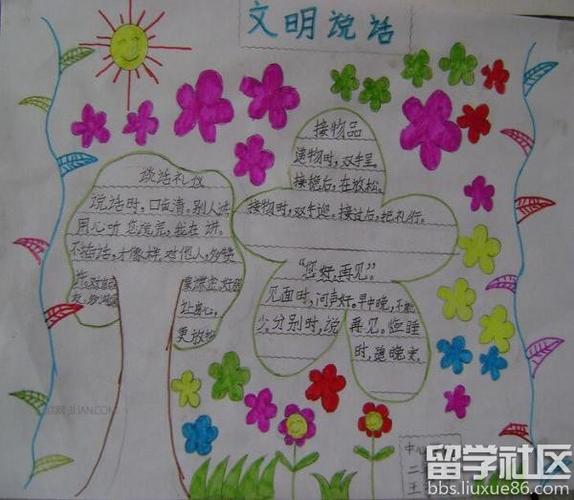 文明说话
谈话礼仪
说话时,口齿清。别人讲
用心听。您说完,我在讲。
不插话,才像样。对他人,多赞
让真心,
更放松
接物品
递物时,双手呈。
接稳后,在放松。
接物时,双手迎。接过后,把礼行。
“您好,再见”
见面时,问声好。早中晚,不能
少。分别时,说再见。临睡
时,道晚安。
中心
二
王
JIAN.COM
留学社区
bbs.liuxue86.com